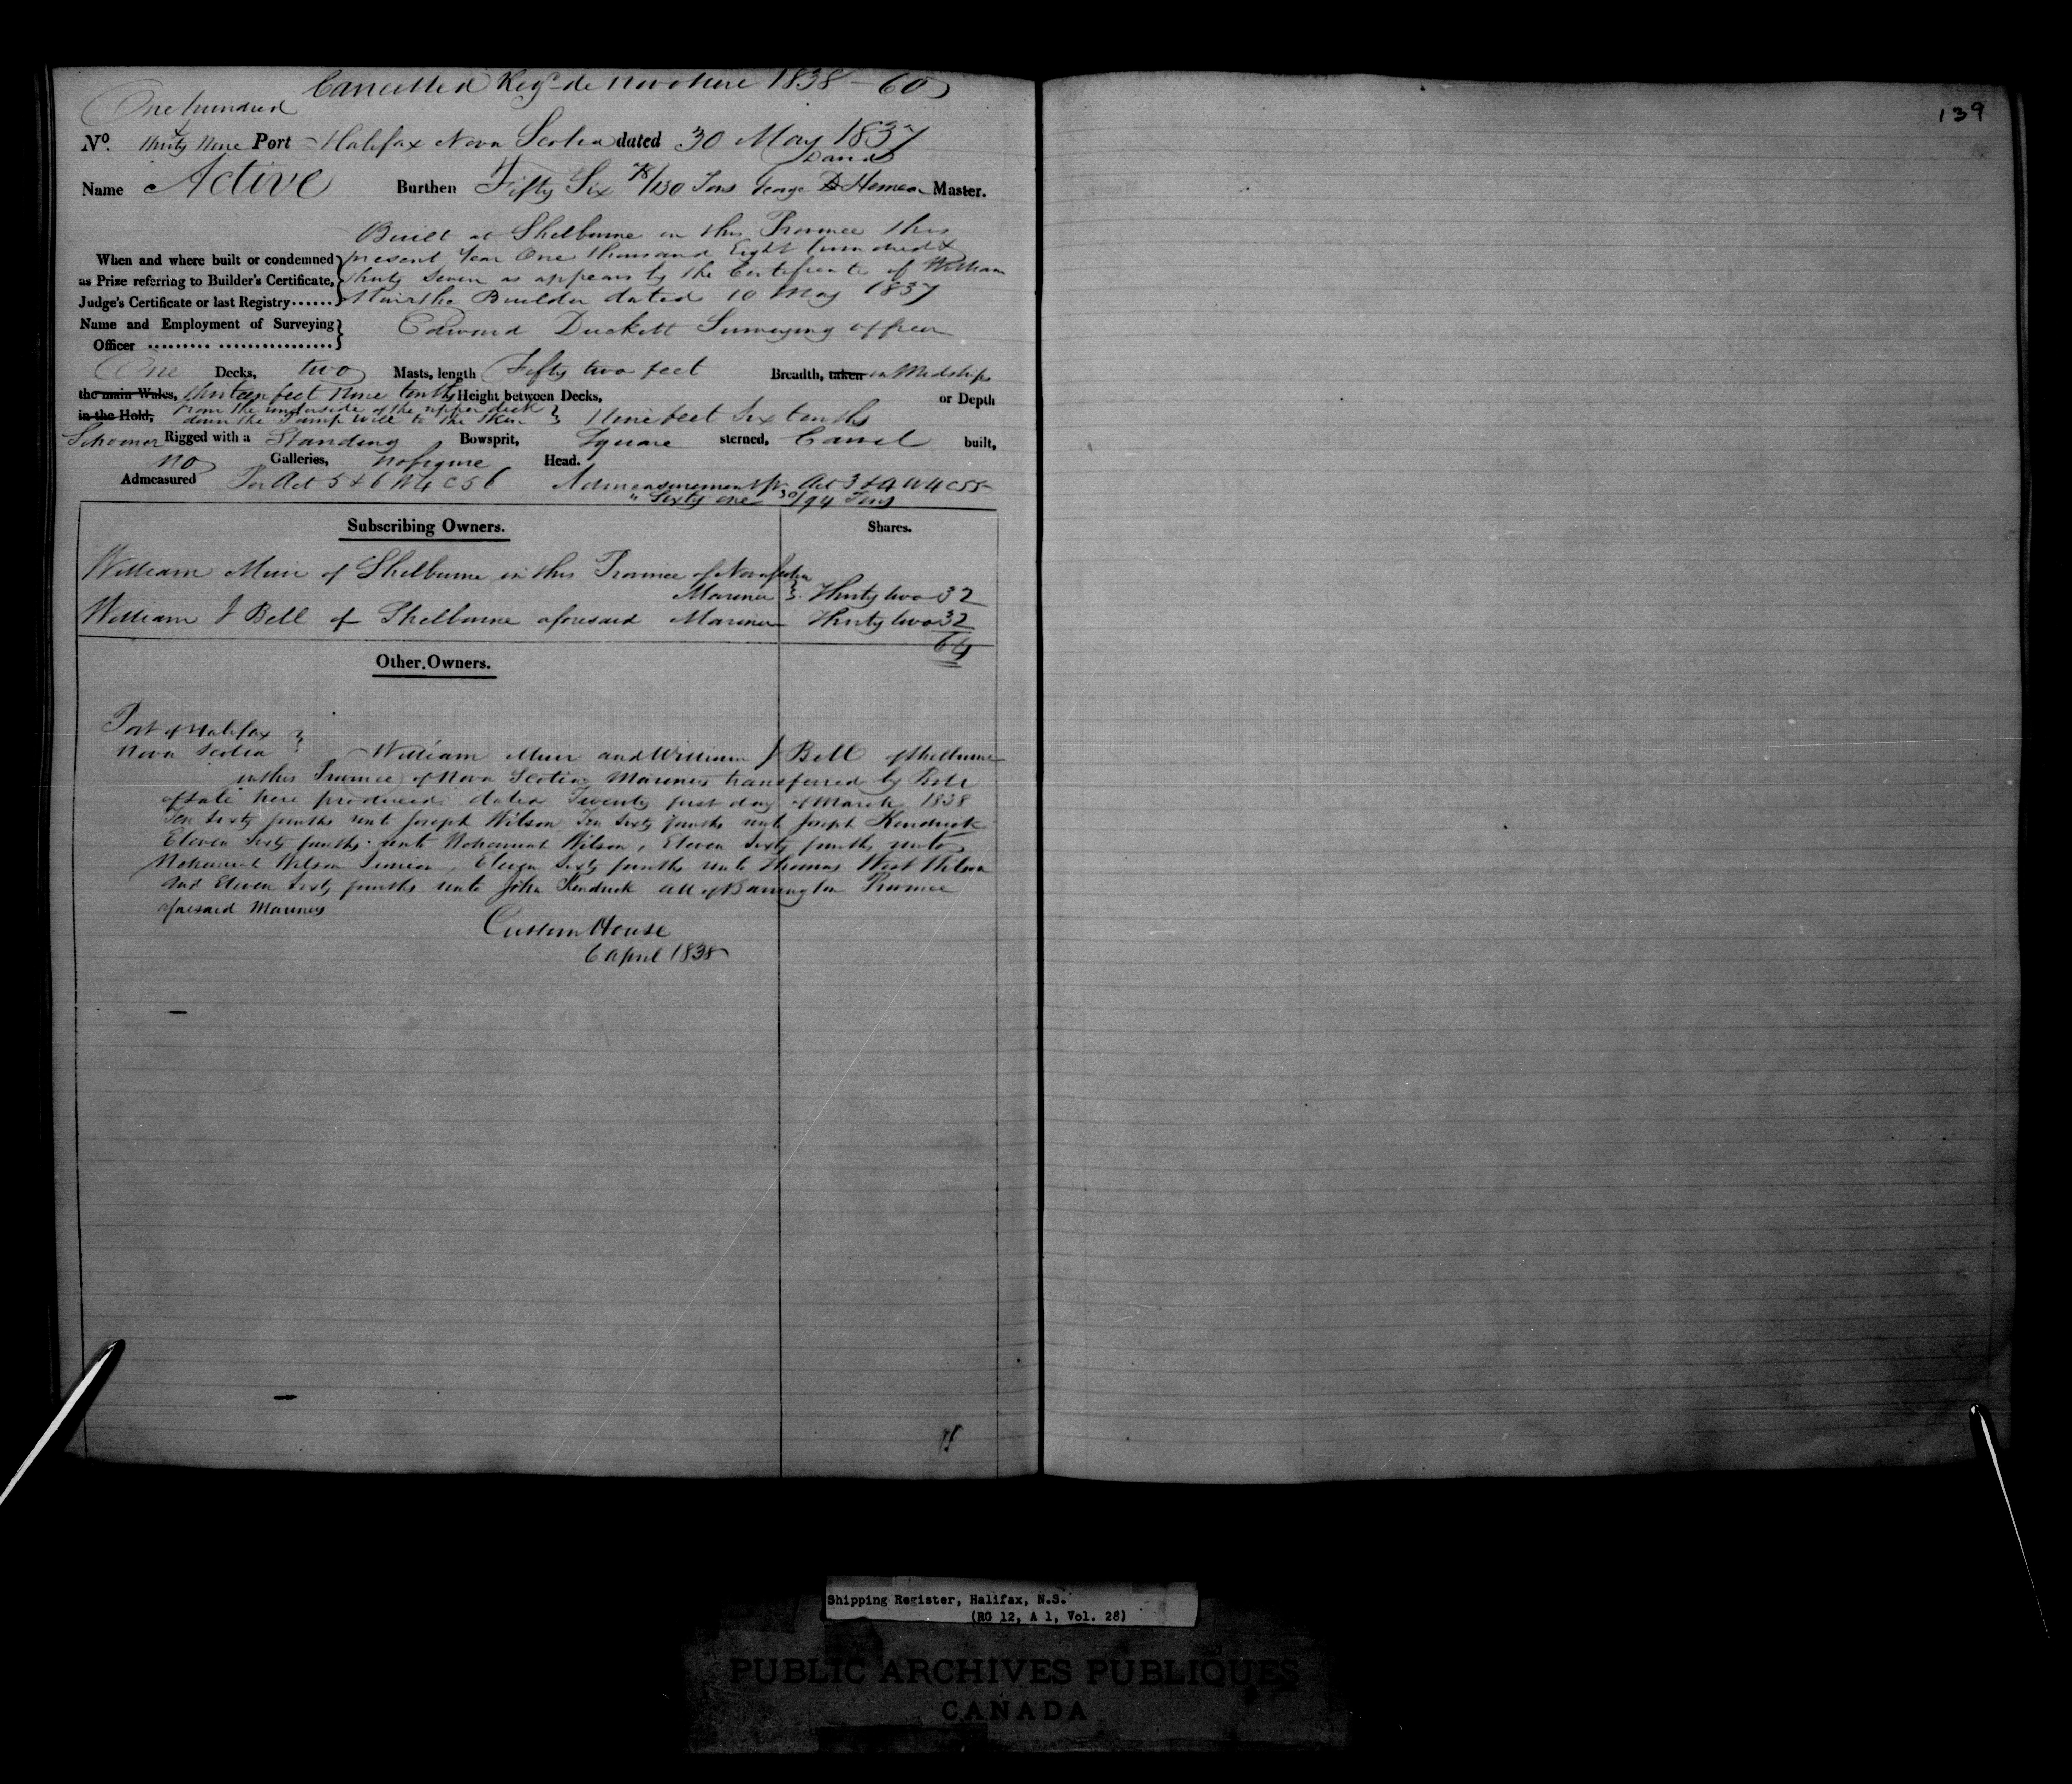 Cancelled Regd de novo here 1838 - 60
139
One hundred
& thirty nine
No. Port Halifax Nova Scotia dated 30 May 1837
David
Name Active Burthen Fifty Six 78/130 Tons George D Homer Master.
Built at Shelburne in this Province this
When and where built or condemned present Year One thousand Eight hundred &
as Prize referring to Builder's Certificate, thirty Seven as appears by the Certificate of William
Judge's Certificate or last Registry...... Muir the Builder dated 10 May 1837
Name and Employment of Surveying Edward Duckett Surveying officer
Officer ......... ................
One Decks, two Masts, length Fifty two feet Breadth, taken in Midships
the main Wales, thirteen feet Nine tenths Height between Decks, or Depth
in the Hold, From the underside of the upper deck
down the Pump well to the Skin Nine feet Six tenths
Schooner Rigged with a Standing Bowsprit, Square sterned, Carvel built,
no Galleries, no figure Head.
Admeasured Per Act 5 & 6 W 4 C 56 Admeasurement pr Act 3 & 4 W 4 C 55
" Sixty one 30/94 Tons
Subscribing Owners. Shares.
William Muir of Shelburne in this Province of Nova Scotia
Mariner Thirty two 32
William J Bell of Shelburne aforesaid Mariner Thirty two 32
64
Other Owners.
Port of Halifax
Nova Scotia William Muir and William J Bell of Shelburne
in this Province of Nova Scotia Mariners transferred by Bill
of Sale here produced dated Twenty first day of March 1838
Ten Sixty fourths unto Joseph Wilson Ten Sixty fourths unto Joseph Kendrick
Eleven Sixty fourths unto Nehemiah Wilson, Eleven Sixty fourths unto
Nehemiah Wilson Junior, Eleven Sixty fourths unto Thomas West Wilson
And Eleven Sixty fourths unto John Kendrick all of Barrington Province
aforesaid Mariners
Custom House
6 April 1838
Shipping Register, Halifax, N.S.
(RG 12, A 1, Vol. 28)
PUBLIC ARCHIVES PUBLIQUES
CANADA